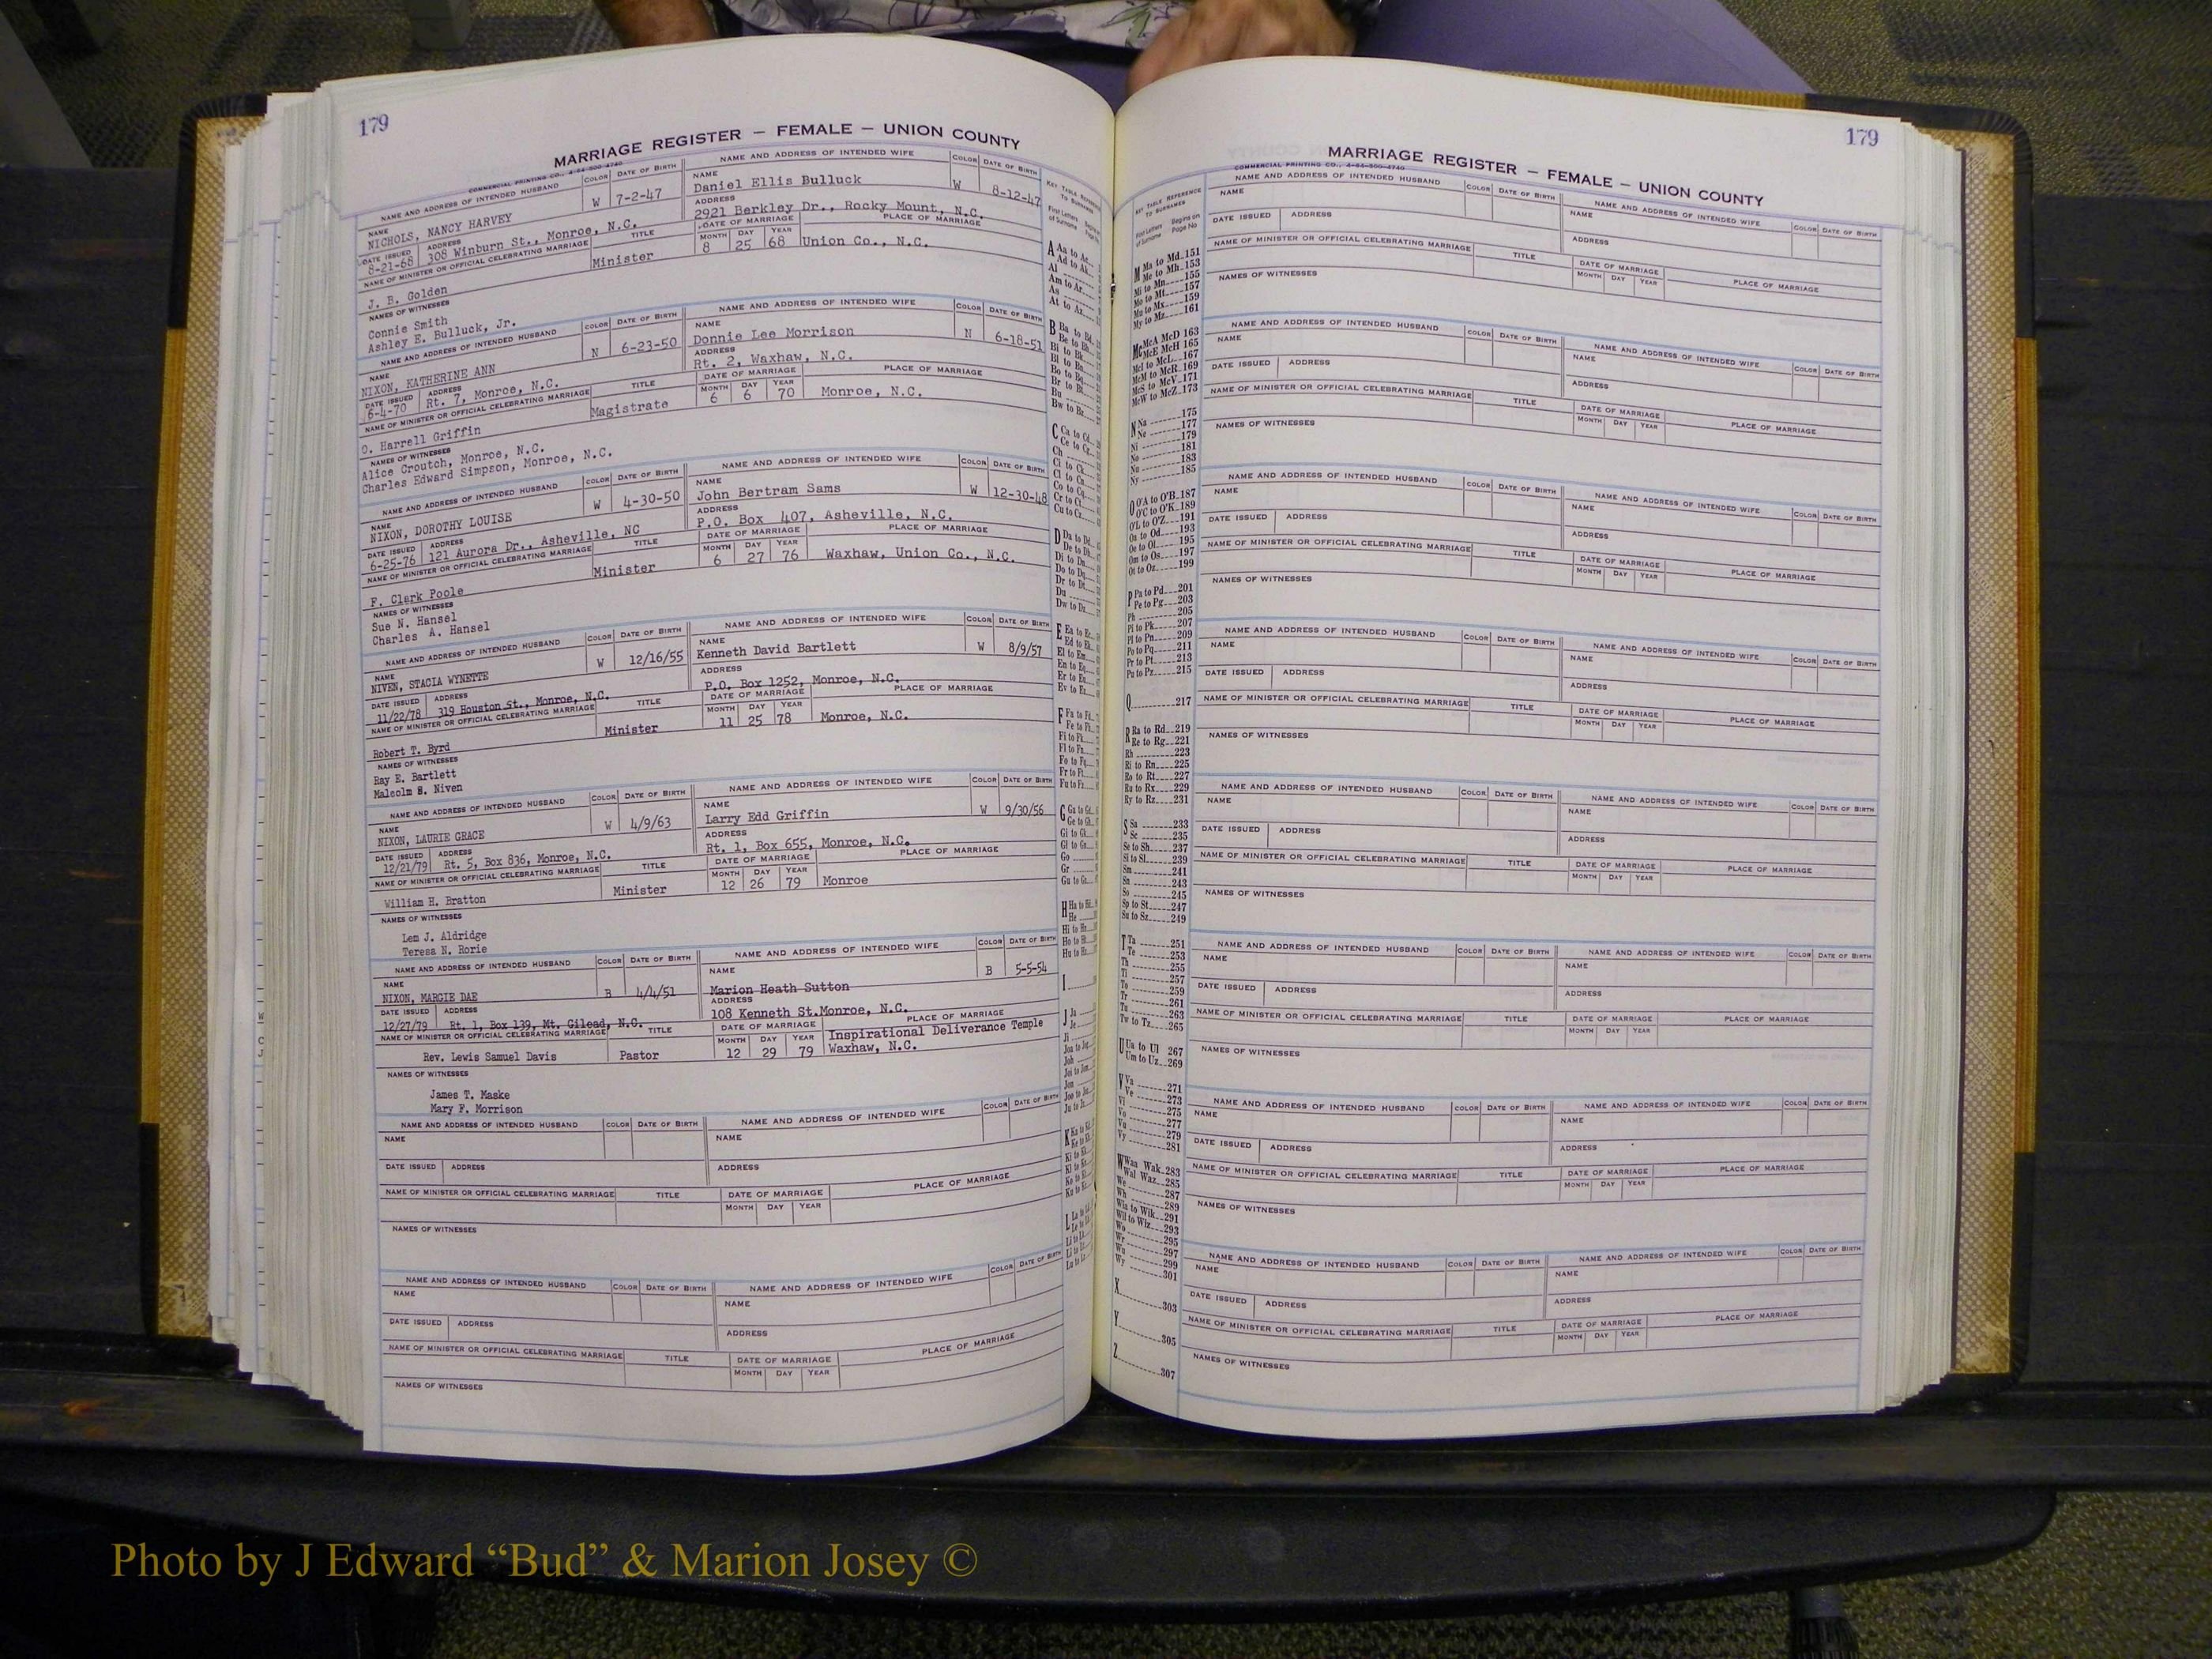 179
MARRIAGE REGISTER — FEMALE — UNION COUNTY
COMMERCIAL PRINTING CO., 4-64-500-4740
NAME AND ADDRESS OF INTENDED HUSBAND COLOR DATE OF BIRTH NAME AND ADDRESS OF INTENDED WIFE COLOR DATE OF BIRTH
NAME NICHOLS, NANCY HARVEY W 7-2-47 NAME Daniel Ellis Bulluck W 8-12-47
DATE ISSUED 8-21-68 ADDRESS 308 Winburn St., Monroe, N.C. ADDRESS 2921 Berkley Dr., Rocky Mount, N.C.
NAME OF MINISTER OR OFFICIAL CELEBRATING MARRIAGE TITLE DATE OF MARRIAGE PLACE OF MARRIAGE
MONTH DAY YEAR
J. B. Golden Minister 8 25 68 Union Co., N.C.
NAMES OF WITNESSES
Connie Smith
Ashley E. Bulluck, Jr.
NAME AND ADDRESS OF INTENDED HUSBAND COLOR DATE OF BIRTH NAME AND ADDRESS OF INTENDED WIFE COLOR DATE OF BIRTH
NAME NIXON, KATHERINE ANN N 6-23-50 NAME Donnie Lee Morrison N 6-18-51
DATE ISSUED 6-4-70 ADDRESS Rt. 7, Monroe, N.C. ADDRESS Rt. 2, Waxhaw, N.C.
NAME OF MINISTER OR OFFICIAL CELEBRATING MARRIAGE TITLE DATE OF MARRIAGE PLACE OF MARRIAGE
MONTH DAY YEAR
O. Harrell Griffin Magistrate 6 6 70 Monroe, N.C.
NAMES OF WITNESSES
Alice Croutch, Monroe, N.C.
Charles Edward Simpson, Monroe, N.C.
NAME AND ADDRESS OF INTENDED HUSBAND COLOR DATE OF BIRTH NAME AND ADDRESS OF INTENDED WIFE COLOR DATE OF BIRTH
NAME NIXON, DOROTHY LOUISE W 4-30-50 NAME John Bertram Sams W 12-30-48
DATE ISSUED 6-25-76 ADDRESS 121 Aurora Dr., Asheville, NC ADDRESS P.O. Box 407, Asheville, N.C.
NAME OF MINISTER OR OFFICIAL CELEBRATING MARRIAGE TITLE DATE OF MARRIAGE PLACE OF MARRIAGE
MONTH DAY YEAR
F. Clark Poole Minister 6 27 76 Waxhaw, Union Co., N.C.
NAMES OF WITNESSES
Sue N. Hansel
Charles A. Hansel
NAME AND ADDRESS OF INTENDED HUSBAND COLOR DATE OF BIRTH NAME AND ADDRESS OF INTENDED WIFE COLOR DATE OF BIRTH
NAME NIVEN, STACIA WYNETTE W 12/16/55 NAME Kenneth David Bartlett W 8/9/57
DATE ISSUED 11/22/78 ADDRESS 319 Houston St., Monroe, N.C. ADDRESS P.O. Box 1252, Monroe, N.C.
NAME OF MINISTER OR OFFICIAL CELEBRATING MARRIAGE TITLE DATE OF MARRIAGE PLACE OF MARRIAGE
MONTH DAY YEAR
Robert T. Byrd Minister 11 25 78 Monroe, N.C.
NAMES OF WITNESSES
Ray E. Bartlett
Malcolm B. Niven
NAME AND ADDRESS OF INTENDED HUSBAND COLOR DATE OF BIRTH NAME AND ADDRESS OF INTENDED WIFE COLOR DATE OF BIRTH
NAME NIXON, LAURIE GRACE W 4/9/63 NAME Larry Edd Griffin W 9/30/56
DATE ISSUED 12/21/79 ADDRESS Rt. 5, Box 836, Monroe, N.C. ADDRESS Rt. 1, Box 655, Monroe, N.C.
NAME OF MINISTER OR OFFICIAL CELEBRATING MARRIAGE TITLE DATE OF MARRIAGE PLACE OF MARRIAGE
MONTH DAY YEAR
William H. Bratton Minister 12 26 79 Monroe
NAMES OF WITNESSES
Lem J. Aldridge
Teresa N. Rorie
NAME AND ADDRESS OF INTENDED HUSBAND COLOR DATE OF BIRTH NAME AND ADDRESS OF INTENDED WIFE COLOR DATE OF BIRTH
NAME NIXON, MARGIE DAE B 4/4/51 NAME Marion Heath Sutton B 5-5-54
DATE ISSUED 12/27/79 ADDRESS Rt. 1, Box 139, Mt. Gilead, N.C. ADDRESS 108 Kenneth St.Monroe, N.C.
NAME OF MINISTER OR OFFICIAL CELEBRATING MARRIAGE TITLE DATE OF MARRIAGE PLACE OF MARRIAGE
MONTH DAY YEAR Inspirational Deliverance Temple
Rev. Lewis Samuel Davis Pastor 12 29 79 Waxhaw, N.C.
NAMES OF WITNESSES
James T. Maske
Mary F. Morrison
NAME AND ADDRESS OF INTENDED HUSBAND COLOR DATE OF BIRTH NAME AND ADDRESS OF INTENDED WIFE COLOR DATE OF BIRTH
NAME NAME
DATE ISSUED ADDRESS ADDRESS
NAME OF MINISTER OR OFFICIAL CELEBRATING MARRIAGE TITLE DATE OF MARRIAGE PLACE OF MARRIAGE
MONTH DAY YEAR
NAMES OF WITNESSES
NAME AND ADDRESS OF INTENDED HUSBAND COLOR DATE OF BIRTH NAME AND ADDRESS OF INTENDED WIFE COLOR DATE OF BIRTH
NAME NAME
DATE ISSUED ADDRESS ADDRESS
NAME OF MINISTER OR OFFICIAL CELEBRATING MARRIAGE TITLE DATE OF MARRIAGE PLACE OF MARRIAGE
MONTH DAY YEAR
NAMES OF WITNESSES
179
MARRIAGE REGISTER — FEMALE — UNION COUNTY
COMMERCIAL PRINTING CO., 4-64-500-4740
KEY TABLE REFERENCE TO SURNAMES
First Letters of Surname Begins on Page No
M Ma to Md 151
Me to Mh 153
Mi to Mn 155
Mo to Mt 157
Mu to Mx 159
My to Mz 161
Mc McA McD 163
McE McH 165
McI to McL 167
McM to McR 169
McS to McV 171
McW to McZ 173
N Na 175
Ne 177
Ni 179
No 181
Nu 183
Ny 185
O O'A to O'B 187
O'C to O'K 189
O'L to O'Z 191
Oa to Od 193
Oe to Ol 195
Om to Os 197
Ot to Oz 199
P Pa to Pd 201
Pe to Pg 203
Ph 205
Pi to Pk 207
Pl to Pn 209
Po to Pq 211
Pr to Pt 213
Pu to Pz 215
Q 217
R Ra to Rd 219
Re to Rg 221
Rh 223
Ri to Rn 225
Ro to Rt 227
Ru to Rx 229
Ry to Rz 231
S Sa 233
Sc 235
Se to Sh 237
Si to Sl 239
Sm 241
Sn 243
So 245
Sp to St 247
Su to Sz 249
T Ta 251
Te 253
Th 255
Ti 257
To 259
Tr 261
Tu 263
Tw to Tz 265
U Ua to Ul 267
Um to Uz 269
V Va 271
Ve 273
Vi 275
Vo 277
Vu 279
Vy 281
W Waa Wak 283
Wal Waz 285
We 287
Wh 289
Wia to Wik 291
Wil to Wiz 293
Wo 295
Wr 297
Wu 299
Wy 301
X 303
Y 305
Z 307
NAME AND ADDRESS OF INTENDED HUSBAND COLOR DATE OF BIRTH NAME AND ADDRESS OF INTENDED WIFE COLOR DATE OF BIRTH
NAME NAME
DATE ISSUED ADDRESS ADDRESS
NAME OF MINISTER OR OFFICIAL CELEBRATING MARRIAGE TITLE DATE OF MARRIAGE PLACE OF MARRIAGE
MONTH DAY YEAR
NAMES OF WITNESSES
NAME AND ADDRESS OF INTENDED HUSBAND COLOR DATE OF BIRTH NAME AND ADDRESS OF INTENDED WIFE COLOR DATE OF BIRTH
NAME NAME
DATE ISSUED ADDRESS ADDRESS
NAME OF MINISTER OR OFFICIAL CELEBRATING MARRIAGE TITLE DATE OF MARRIAGE PLACE OF MARRIAGE
MONTH DAY YEAR
NAMES OF WITNESSES
NAME AND ADDRESS OF INTENDED HUSBAND COLOR DATE OF BIRTH NAME AND ADDRESS OF INTENDED WIFE COLOR DATE OF BIRTH
NAME NAME
DATE ISSUED ADDRESS ADDRESS
NAME OF MINISTER OR OFFICIAL CELEBRATING MARRIAGE TITLE DATE OF MARRIAGE PLACE OF MARRIAGE
MONTH DAY YEAR
NAMES OF WITNESSES
NAME AND ADDRESS OF INTENDED HUSBAND COLOR DATE OF BIRTH NAME AND ADDRESS OF INTENDED WIFE COLOR DATE OF BIRTH
NAME NAME
DATE ISSUED ADDRESS ADDRESS
NAME OF MINISTER OR OFFICIAL CELEBRATING MARRIAGE TITLE DATE OF MARRIAGE PLACE OF MARRIAGE
MONTH DAY YEAR
NAMES OF WITNESSES
NAME AND ADDRESS OF INTENDED HUSBAND COLOR DATE OF BIRTH NAME AND ADDRESS OF INTENDED WIFE COLOR DATE OF BIRTH
NAME NAME
DATE ISSUED ADDRESS ADDRESS
NAME OF MINISTER OR OFFICIAL CELEBRATING MARRIAGE TITLE DATE OF MARRIAGE PLACE OF MARRIAGE
MONTH DAY YEAR
NAMES OF WITNESSES
NAME AND ADDRESS OF INTENDED HUSBAND COLOR DATE OF BIRTH NAME AND ADDRESS OF INTENDED WIFE COLOR DATE OF BIRTH
NAME NAME
DATE ISSUED ADDRESS ADDRESS
NAME OF MINISTER OR OFFICIAL CELEBRATING MARRIAGE TITLE DATE OF MARRIAGE PLACE OF MARRIAGE
MONTH DAY YEAR
NAMES OF WITNESSES
NAME AND ADDRESS OF INTENDED HUSBAND COLOR DATE OF BIRTH NAME AND ADDRESS OF INTENDED WIFE COLOR DATE OF BIRTH
NAME NAME
DATE ISSUED ADDRESS ADDRESS
NAME OF MINISTER OR OFFICIAL CELEBRATING MARRIAGE TITLE DATE OF MARRIAGE PLACE OF MARRIAGE
MONTH DAY YEAR
NAMES OF WITNESSES
NAME AND ADDRESS OF INTENDED HUSBAND COLOR DATE OF BIRTH NAME AND ADDRESS OF INTENDED WIFE COLOR DATE OF BIRTH
NAME NAME
DATE ISSUED ADDRESS ADDRESS
NAME OF MINISTER OR OFFICIAL CELEBRATING MARRIAGE TITLE DATE OF MARRIAGE PLACE OF MARRIAGE
MONTH DAY YEAR
NAMES OF WITNESSES
Photo by J Edward “Bud” & Marion Josey ©